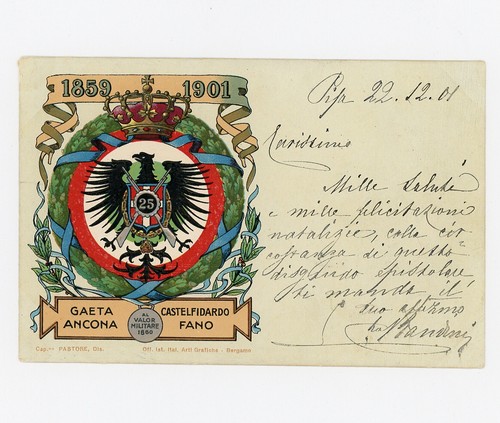 1859 1901
25
GAETA
ANCONA
AL
VALOR
MILITARE
1860
CASTELFIDARDO
FANO
Cap.no PASTORE, Dis.
Off. Ist. Ital. Arti Grafiche - Bergamo
Pisa 22.12.01
Carissimo
Mille saluti
e mille felicitazioni
natalizie, colla cir
costanza di questo
disguido epistolare
ti manda il
tuo affzmo